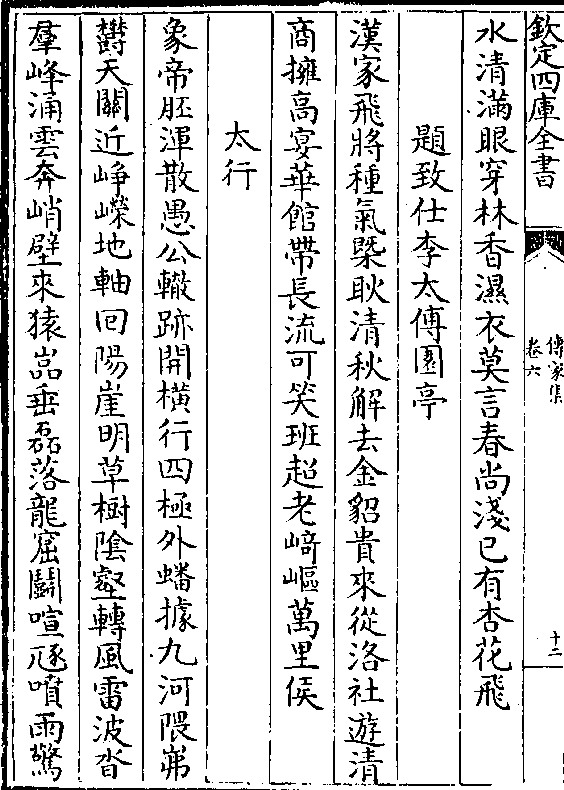 欽定四庫全書
傳家集
卷六
十二
水清滿眼穿林香濕衣莫言春尚淺已有杏花飛
題致仕李太傅園亭
漢家飛將種氣槩耿清秋解去金貂貴來從洛社遊清
商擁高宴華館帶長流可笑班超老﨑嶇萬里侯
太行
象帝胚渾散愚公轍跡開橫行四極外蟠據九河隈岪
欝天關近崢嶸地軸回陽崖明草樹陰壑轉風雷波沓
羣峰涌雲奔峭壁來猿嵓垂磊落龍窟鬭喧豗噴雨驚